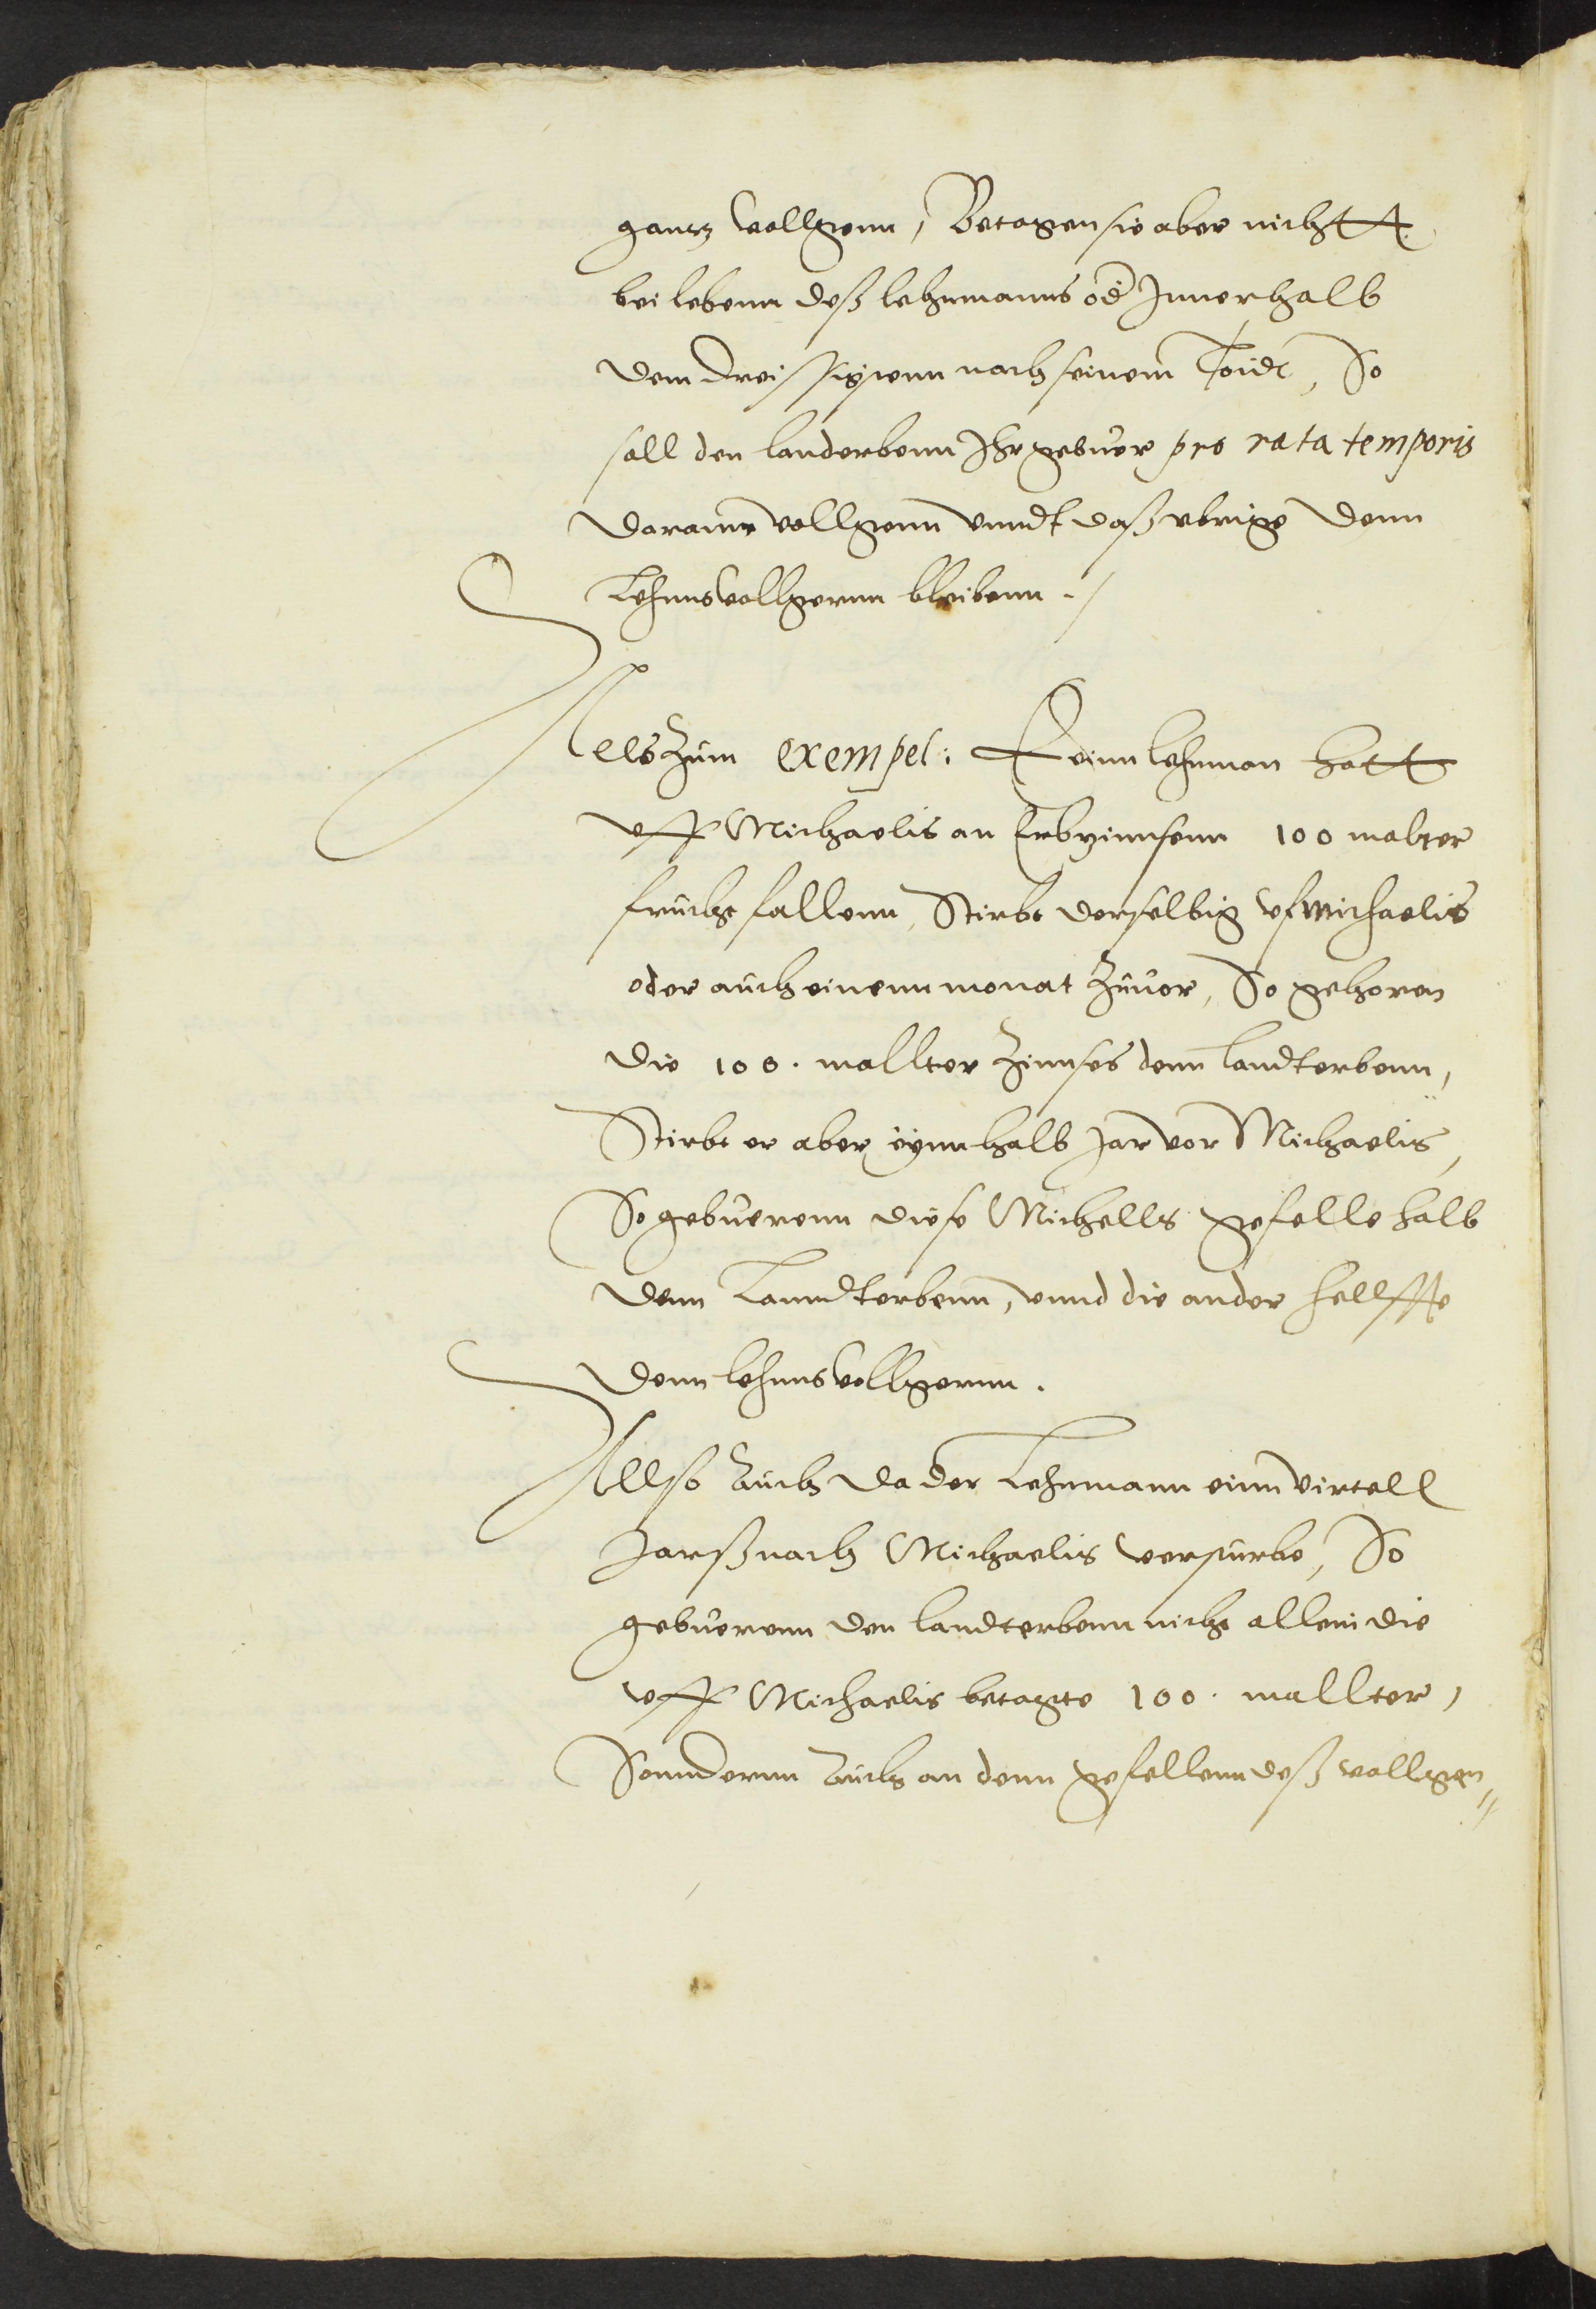 gantz vollgenn, Betagen sie aber nichtt
bei lebenn deß lehnmanns od Innerhalb
dem dreissigstenn nach seinem Toidt, So
soll den landerbenn Ihr gebuer pro rata temporis
darann vollgenn vnndt daß vbrige denn
Lehnnsvollgernn bleibenn.
Als zum exempel: Ein lehnman hatt
vff Michaelis an Erbzinnsenn 100 malter
frucht fallenn, Stirbt derselbig vf Michaelis
oder auch einenn monat zuuor, So gehoren
die 100. mallter Zinnses denn landterbenn,
Stirbt er aber eynn halb Jar vor Michaelis,
So gebuerenn diese Michells gefelle halb
denn Lanndterbenn, vnnd die ander hellffte
denn lehnnsvollgernn.
Allso auch da der Lehnmann einn virtell
Jarß nach Michaelis versturbe, So
gebuerenn den landterbenn nicht allein die
vff Michaelis betagte 100. mallter,
Sonndernn auch an denn gefellenn deß vollgen„